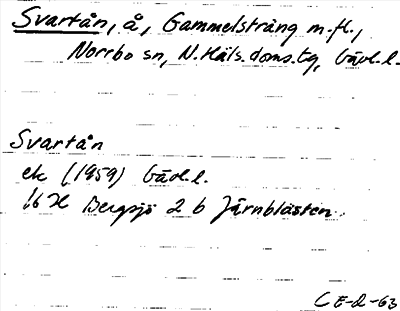 Svartån, å, Gammelsträng m.fl.,
Norrbo sn, N. Häls. doms. tg, Gävl. l.
Svartån
ek (1959) Gävl. l.
16 H Bergsjö 2 b Järnblästen
C E-d-63